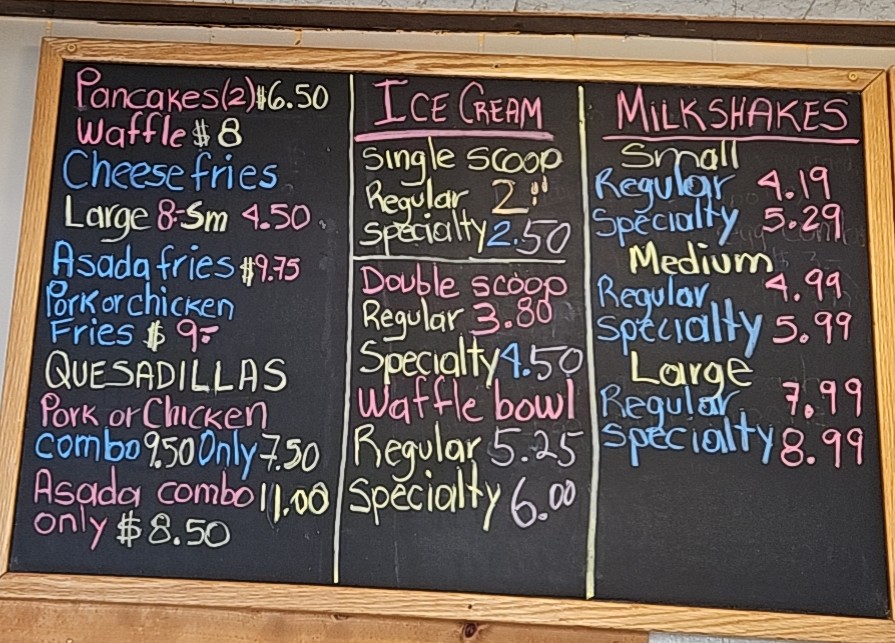 Pancakes(2)$6.50
Waffle $ 8
Cheese fries
Large 8-Sm 4.50
Asada fries $9.75
Pork or chicken
Fries $ 9-
QUESADILLAS
Pork or Chicken
combo 9.50 Only 7.50
Asada combo 11.00
only $8.50
ICE CREAM
Single scoop
Regular 2"
Specialty 2.50
Double scoop
Regular 3.80
Specialty 4.50
Waffle bowl
Regular 5.25
Specialty 6.00
MILKSHAKES
Small
Regular 4.19
Specialty 5.29
Medium
Regular 4.99
Specialty 5.99
Large
Regular 7.99
Specialty 8.99